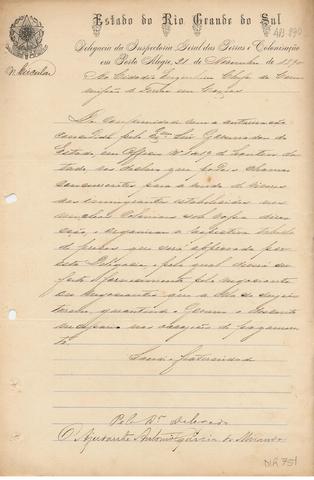 Estado do Rio Grande do Sul
AB.890
Delegacia da Inspectoria Geral das Terras e Colonisação
em Porto Alegre, 21 de Novembro de 1890
Nº Circular
Ao Cidadão Engenheiro Chefe da Com
missão de Terras em
De conformidade com a autorisação
concedida pelo Exmo Snr Governador do
Estado, em Officio Nº de hontem da
tado,
para a venda de viveres
aos immigrantes estabelecidos nos
nucleos Coloniaes sob vossa direc
ção, e organisar a respectiva tabella
de preços que será approvada por
esta Delegacia, pela qual deverá ser
feito o fornecimento pelo negociante
ou negociantes que a isso se sujei
tarem, garantindo o Governo o
no pagamen
to.
Saude e fraternidade
Pelo Dr. Delegado
O Ajudante Antonio Garcia de Miranda
DIR 751